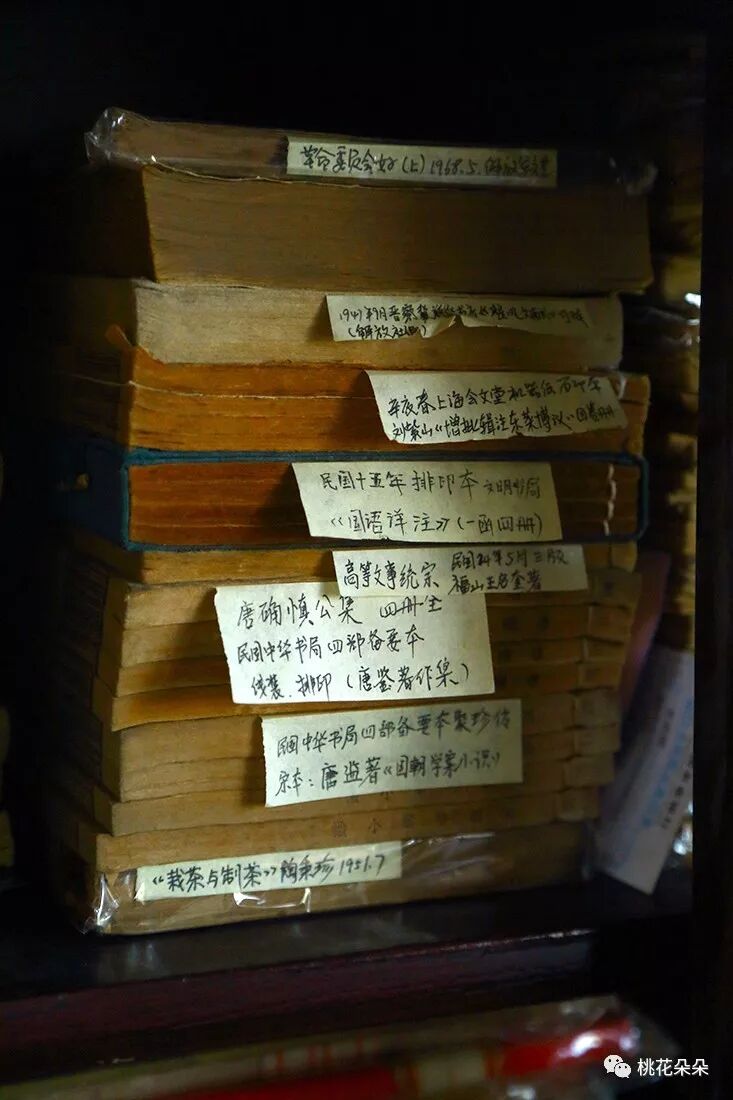 革命委员会好(上)1968.5.解放军文艺
1947年9月晋察冀
(解放社出)
辛亥春上海会文堂机器纸石印本
刘紫山《增批辑注东莱博议》四卷四册
民国十五年排印本 文明书局
《国语详注》(一函四册)
高等文事统宗 民国24年5月三版
福山王 著
唐确慎公集 四册全
民国中华书局四部备要本
线装.排印(唐鉴著作集)
民国中华书局四部备要本聚珍仿
宋本:唐监著《国朝学案小识》
《栽茶与制茶》陶秉珍 1951.7
桃花朵朵